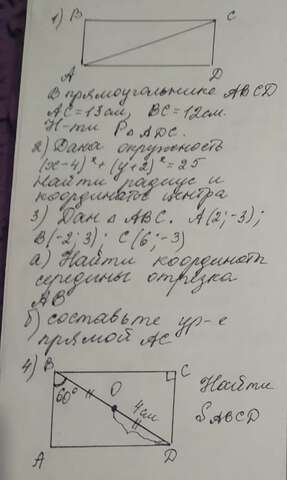 1) B C
A D
В прямоугольнике ABCD
AC = 13см, BC = 12см.
Н-ти P△ADC.
2) Дана окружность
(x-4)²+(y+2)²=25
Найти радиус и
координаты центра
3) Дан △ABC. A(2;-3);
B(-2;3); C(6;-3)
а) Найти координаты
середины отрезка
AB
б) составьте ур-е
прямой AC
4) B C
60° O 4см
Найти
SABCD
A D